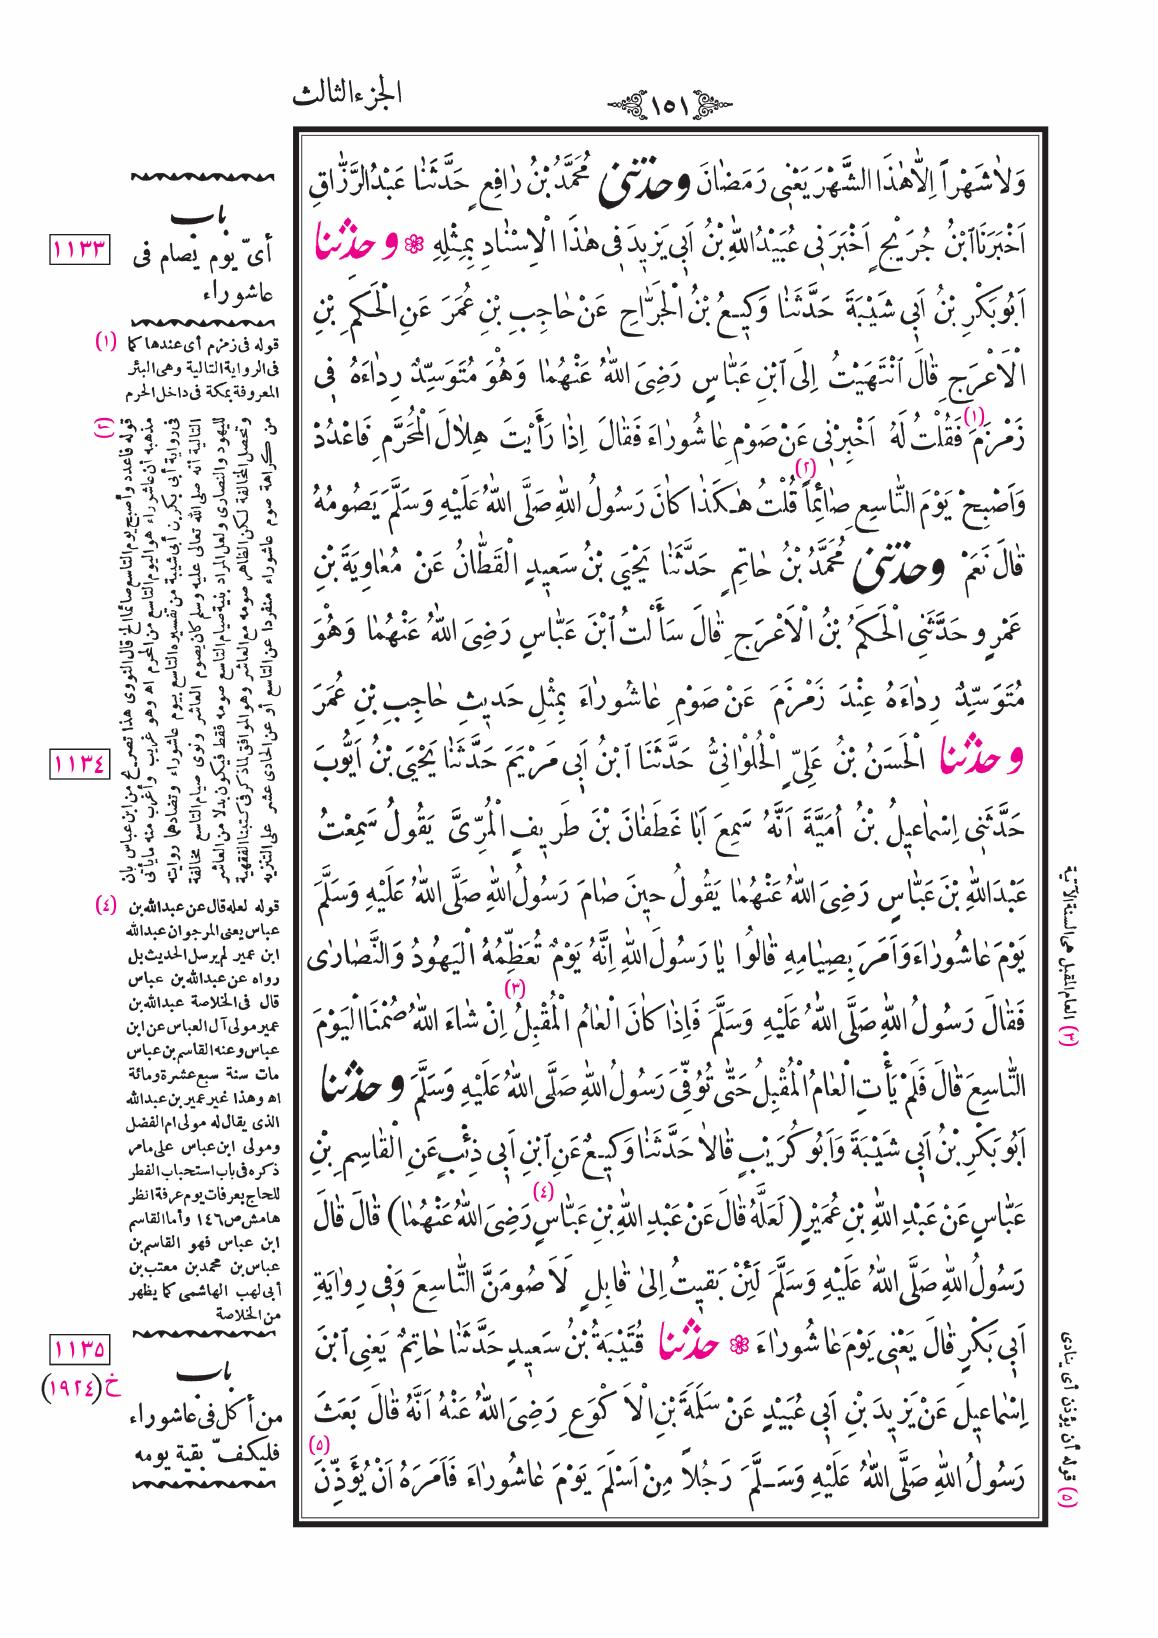 الجزء الثالث
١٥١
وَلَا شَهْراً إِلَّا هٰذَا الشَّهْرَ يَعْنِي رَمَضَانَ وحدثني مُحَمَّدُ بْنُ رَافِعٍ حَدَّثَنَا عَبْدُ الرَّزَّاقِ
أَخْبَرَنَا ابْنُ جُرَيْجٍ أَخْبَرَنِي عُبَيْدُ اللهِ بْنُ أَبِي يَزِيدَ فِي هٰذَا الْإِسْنَادِ بِمِثْلِهِ ❁ وحدثنا
أَبُو بَكْرِ بْنُ أَبِي شَيْبَةَ حَدَّثَنَا وَكِيعُ بْنُ الْجَرَّاحِ عَنْ حَاجِبِ بْنِ عُمَرَ عَنِ الْحَكَمِ بْنِ
الْأَعْرَجِ قَالَ انْتَهَيْتُ إِلَى ابْنِ عَبَّاسٍ رَضِيَ اللهُ عَنْهُمَا وَهُوَ مُتَوَسِّدٌ رِدَاءَهُ فِي
زَمْزَمَ (١) فَقُلْتُ لَهُ أَخْبِرْنِي عَنْ صَوْمِ عَاشُورَاءَ فَقَالَ إِذَا رَأَيْتَ هِلَالَ الْمُحَرَّمِ فَاعْدُدْ
وَأَصْبِحْ يَوْمَ التَّاسِعِ صَائِماً (٢) قُلْتُ هٰكَذَا كَانَ رَسُولُ اللهِ صَلَّى اللهُ عَلَيْهِ وَسَلَّمَ يَصُومُهُ
قَالَ نَعَمْ وحدثني مُحَمَّدُ بْنُ حَاتِمٍ حَدَّثَنَا يَحْيَى بْنُ سَعِيدٍ الْقَطَّانُ عَنْ مُعَاوِيَةَ بْنِ
عَمْرٍو حَدَّثَنِي الْحَكَمُ بْنُ الْأَعْرَجِ قَالَ سَأَلْتُ ابْنَ عَبَّاسٍ رَضِيَ اللهُ عَنْهُمَا وَهُوَ
مُتَوَسِّدٌ رِدَاءَهُ عِنْدَ زَمْزَمَ عَنْ صَوْمِ عَاشُورَاءَ بِمِثْلِ حَدِيثِ حَاجِبِ بْنِ عُمَرَ
وحدثنا الْحَسَنُ بْنُ عَلِيٍّ الْحُلْوَانِيُّ حَدَّثَنَا ابْنُ أَبِي مَرْيَمَ حَدَّثَنَا يَحْيَى بْنُ أَيُّوبَ
حَدَّثَنِي إِسْمَاعِيلُ بْنُ أُمَيَّةَ أَنَّهُ سَمِعَ أَبَا غَطَفَانَ بْنَ طَرِيفٍ الْمُرِّيَّ يَقُولُ سَمِعْتُ
عَبْدَ اللهِ بْنَ عَبَّاسٍ رَضِيَ اللهُ عَنْهُمَا يَقُولُ حِينَ صَامَ رَسُولُ اللهِ صَلَّى اللهُ عَلَيْهِ وَسَلَّمَ
يَوْمَ عَاشُورَاءَ وَأَمَرَ بِصِيَامِهِ قَالُوا يَا رَسُولَ اللهِ إِنَّهُ يَوْمٌ تُعَظِّمُهُ الْيَهُودُ وَالنَّصَارَى
فَقَالَ رَسُولُ اللهِ صَلَّى اللهُ عَلَيْهِ وَسَلَّمَ فَإِذَا كَانَ الْعَامُ الْمُقْبِلُ (٣) إِنْ شَاءَ اللهُ صُمْنَا الْيَوْمَ
التَّاسِعَ قَالَ فَلَمْ يَأْتِ الْعَامُ الْمُقْبِلُ حَتَّى تُوُفِّيَ رَسُولُ اللهِ صَلَّى اللهُ عَلَيْهِ وَسَلَّمَ وحدثنا
أَبُو بَكْرِ بْنُ أَبِي شَيْبَةَ وَأَبُو كُرَيْبٍ قَالَا حَدَّثَنَا وَكِيعٌ عَنِ ابْنِ أَبِي ذِئْبٍ عَنِ الْقَاسِمِ بْنِ
عَبَّاسٍ عَنْ عَبْدِ اللهِ بْنِ عُمَيْرٍ (لَعَلَّهُ قَالَ عَنْ عَبْدِ اللهِ بْنِ عَبَّاسٍ (٤) رَضِيَ اللهُ عَنْهُمَا) قَالَ قَالَ
رَسُولُ اللهِ صَلَّى اللهُ عَلَيْهِ وَسَلَّمَ لَئِنْ بَقِيتُ إِلَى قَابِلٍ لَأَصُومَنَّ التَّاسِعَ وَفِي رِوَايَةِ
أَبِي بَكْرٍ قَالَ يَعْنِي يَوْمَ عَاشُورَاءَ ❁ حدثنا قُتَيْبَةُ بْنُ سَعِيدٍ حَدَّثَنَا حَاتِمٌ يَعْنِي ابْنَ
إِسْمَاعِيلَ عَنْ يَزِيدَ بْنِ أَبِي عُبَيْدٍ عَنْ سَلَمَةَ بْنِ الْأَكْوَعِ رَضِيَ اللهُ عَنْهُ أَنَّهُ قَالَ بَعَثَ
رَسُولُ اللهِ صَلَّى اللهُ عَلَيْهِ وَسَلَّمَ رَجُلاً مِنْ أَسْلَمَ يَوْمَ عَاشُورَاءَ فَأَمَرَهُ أَنْ يُؤَذِّنَ (٥)
باب
١١٣٣
أىّ يوم يصام فى
عاشوراء
(١) قوله فى زمزم أى عندها كما
فى الرواية التالية وهى البئر
المعروفة بمكة فى داخل الحرم
(٢) قوله فاعدد وأصبح يوم التاسع صائما الخ قال النووى هذا تصريح من ابن عباس بان
مذهبه أن عاشوراء هو اليوم التاسع من المحرم اه وهو غريب وأغرب منه ما يأتى
فى رواية أبى بكر بن أبى شيبة من تفسيره التاسع بيوم عاشوراء وتضادهما روايته
التالية أنه صلى الله تعالى عليه وسلم كان يصوم العاشر ونوى صيام التاسع مخالفة
لليهود والنصارى ولعل المراد بنية صيام التاسع صومه فقط فيكون بدلا من العاشر
وتحصل المخالفة لكن الظاهر صومه مع العاشر وهو الموافق لما ذكر فى كتبنا الفقهية
من كراهة صوم عاشوراء منفردا عن التاسع أو عن الحادى عشر على التنزيه
١١٣٤
(٤) قوله لعله قال عن عبدالله بن
عباس يعنى المرجو ان عبدالله
ابن عمير لم يرسل الحديث بل
رواه عن عبدالله بن عباس
قال فى الخلاصة عبدالله بن
عمير مولى آل العباس عن ابن
عباس وعنه القاسم بن عباس
مات سنة سبع عشرة ومائة
اه وهذا غير عمير بن عبدالله
الذى يقال له مولى ام الفضل
ومولى ابن عباس على مامر
ذكره فى باب استحباب الفطر
للحاج بعرفات يوم عرفة انظر
هامش ص١٤٦ وأما القاسم
ابن عباس فهو القاسم بن
عباس بن محمد بن معتب بن
أبى لهب الهاشمى كما يظهر
من الخلاصة
١١٣٥
خ (١٩٢٤)
باب
من أكل فى عاشوراء
فليكفّ بقية يومه
(٣) العام المقبل هى السنة الآتية
(٥) قوله أن يؤذن أى ينادى